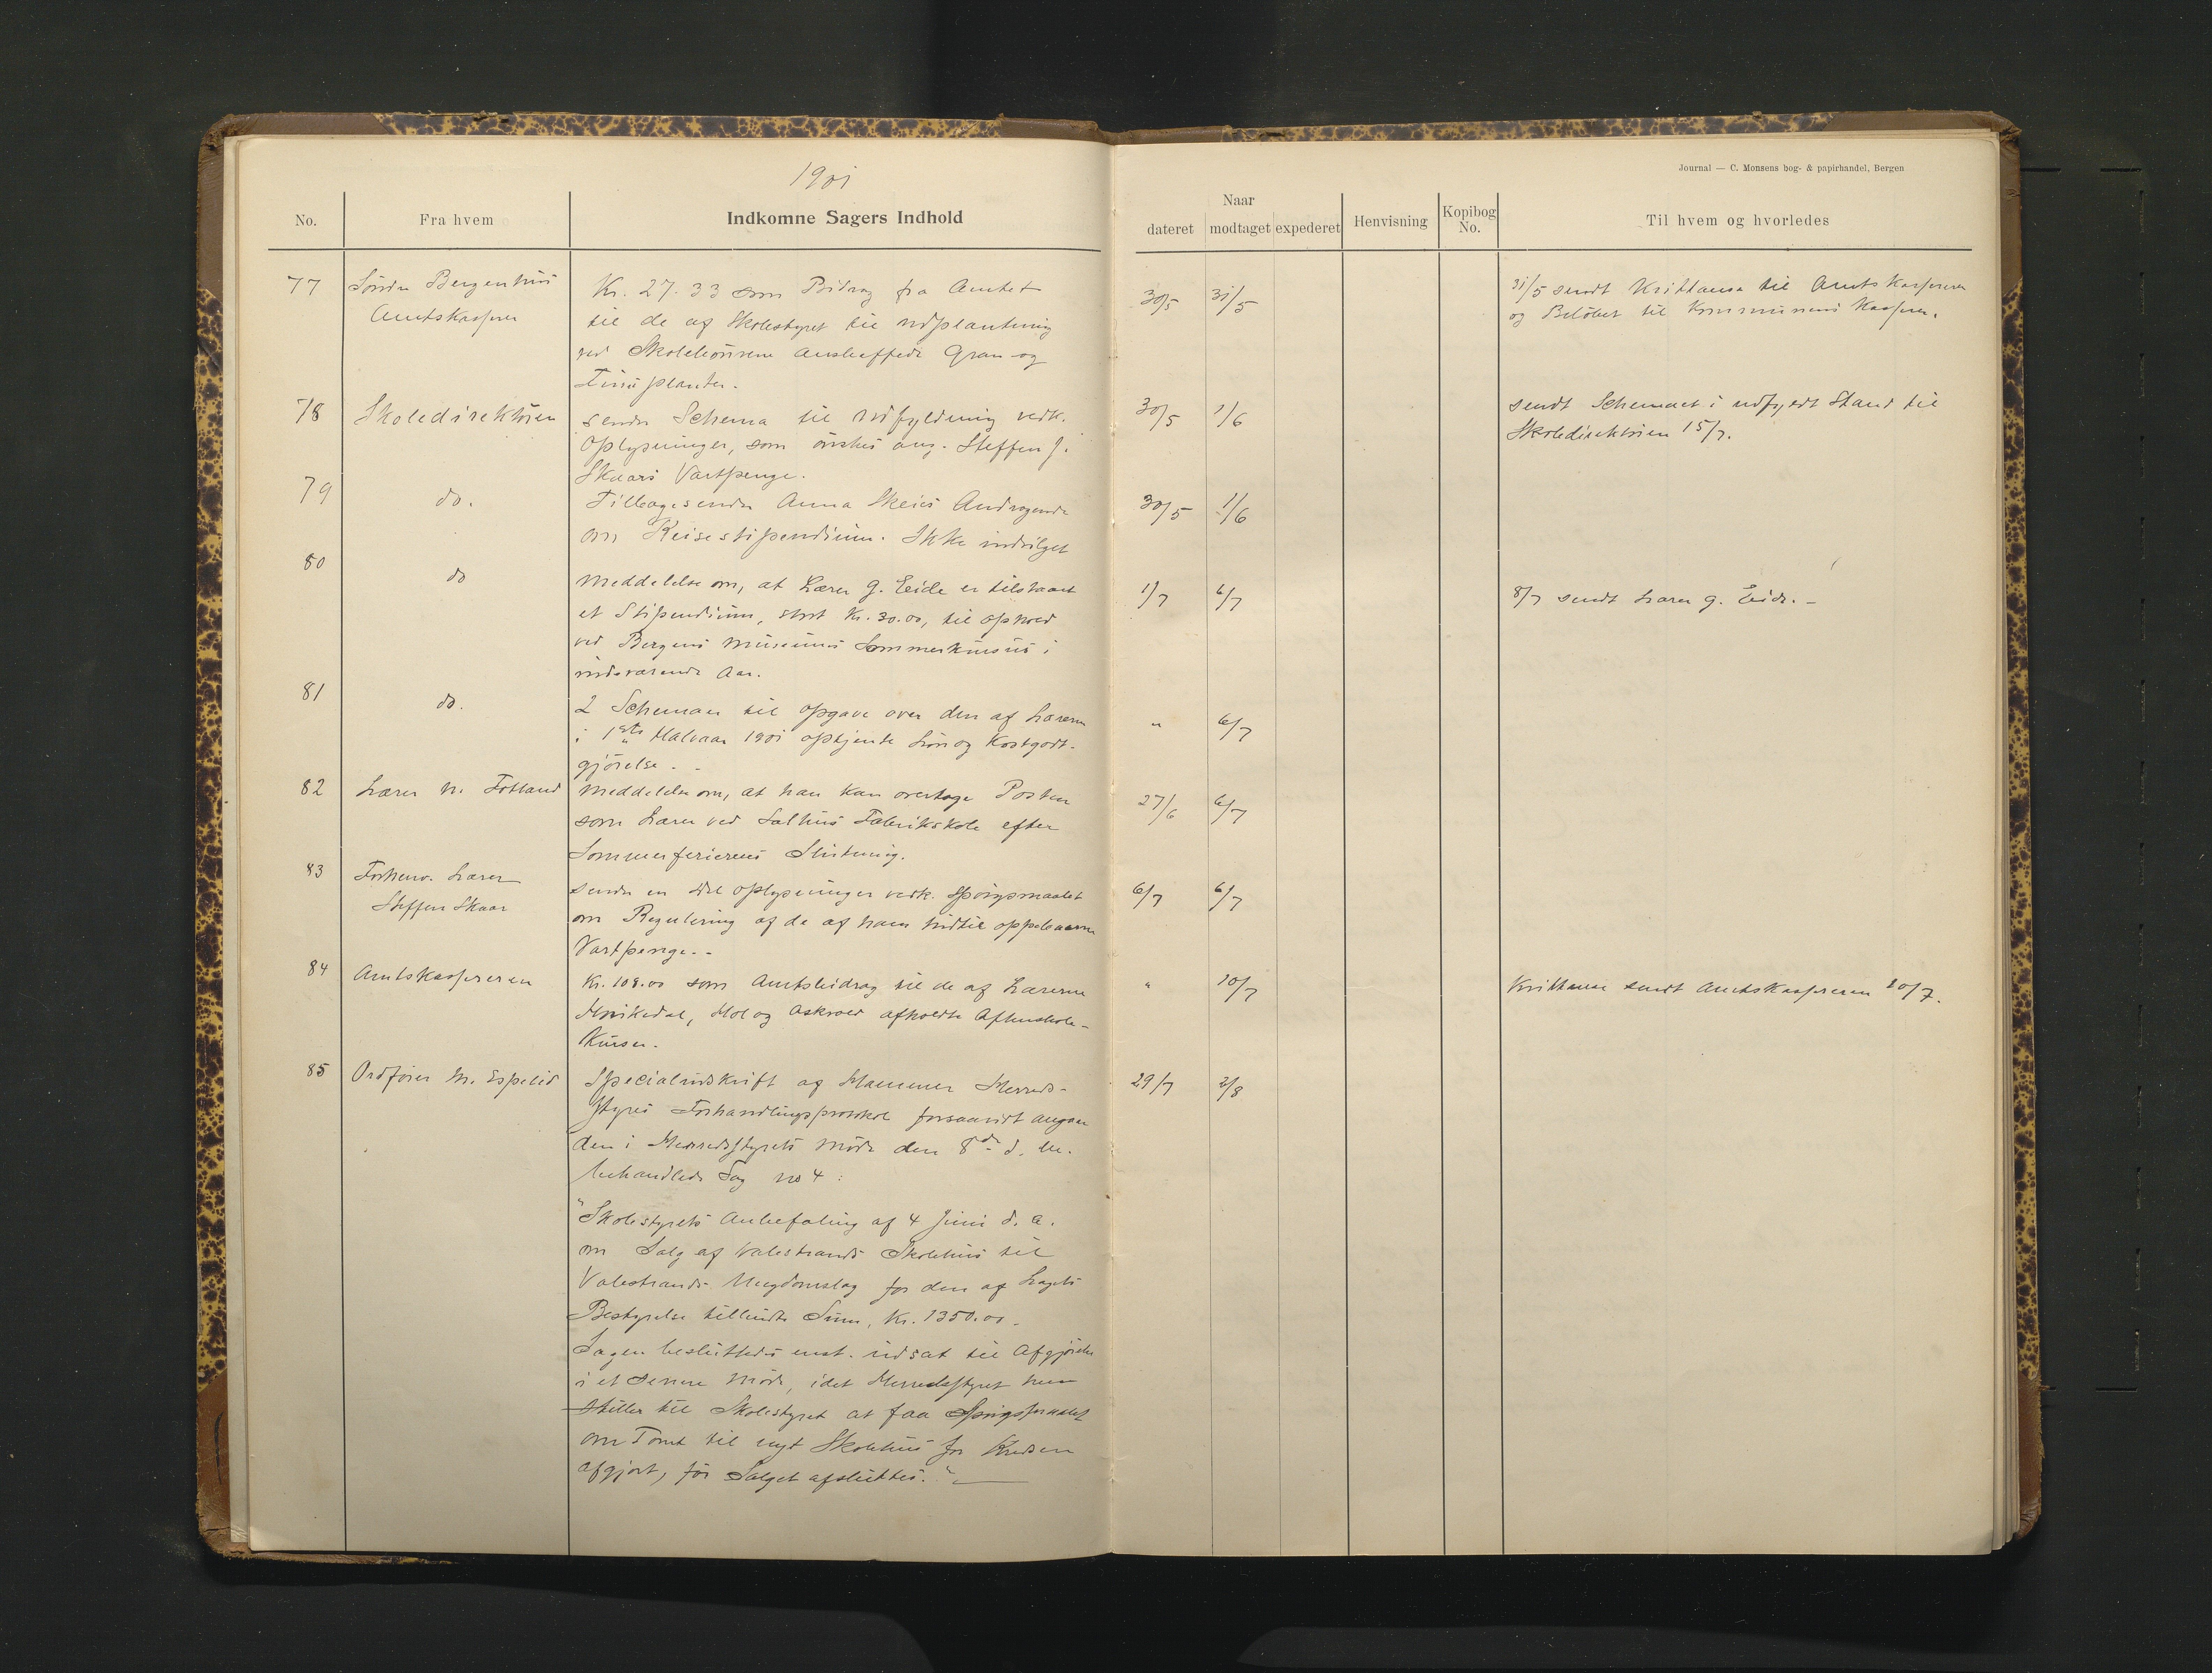 1901
Journal — C. Monsens bog- & papirhandel, Bergen
No.
Fra hvem
Indkomne Sagers Indhold
Naar
dateret
modtaget
expederet
Henvisning
Kopibog
No.
Til hvem og hvorledes
77
Søndre Bergenhus
Amtskasserer
Kr. 27.33 som Bidrag fra Amtet
til de af Skolestyret til Udplantning
ved Skolehusene anskaffede Gran- og
Furuplanter.
30/5
31/5
31/5 sendt Kvittance til Amtskassereren
og Beløbet til Kommunens Kasserer.
78
Skoledirektøren
sender Schema til Udfyldning vedk.
Oplysninger, som ønskes ang. Steffen J.
Skaars Vartpenge.
30/5
1/6
sendt Schemaet i udfyldt Stand til
Skoledirektøren 15/7.
79
do.
Tilbagesender Anna Skeies Andragende
om Reisestipendium. Ikke indvilget
30/5
1/6
80
do
Meddelelse om, at Lærer G. Eide er tilstaaet
et Stipendium, stort Kr. 30.00, til Ophold
ved Bergens Museums Sommerkursus i
indeværende Aar.
1/7
6/7
8/7 sendt Lærer G. Eide. –
81
do.
2 Schemaer til Opgave over den af Lærerne
i 1ste Halvaar 1901 optjente Løn og Kostgodt-
gjørelse. -
"
6/7
82
Lærer N. Fotland
Meddelelse om, at han kan overtage Posten
som Lærer ved Salhus Fabrikskole efter
Sommerferierens Slutning.
27/6
6/7
83
Forhenv. Lærer
Steffen Skaar
sender en Del Oplysninger vedk. Spørgsmaalet
om Regulering af de af ham hidtil oppebaarne
Vartpenge. -
6/7
6/7
84
Amtskassereren
Kr. 108.00 som Amtsbidrag til de af Lærerne
Mjukedal, Hol og Askvold afholdte Aftenskole-
Kurser.
"
10/7
Kvittance sendt Amtskassereren 20/7.
85
Ordfører M. Espelid
Specialudskrift af Hammer Herreds-
styres Forhandlingsprotokol forsaavidt angaar
den i Herredsstyrets Møde den 8de d. M.
behandlede Sag No 4:
29/7
2/8
"Skolestyrets Anbefaling af 4 Juni d. A.
om Salg af Valestrands Skolehus til
Valestrands Ungdomslag for den af Lagets
Bestyrelse tilbudte Sum, Kr. 1350.00 –
Sagen besluttedes enst. udsat til Afgjørelse
i et senere Møde, idet Herredsstyret hen-
stiller til Skolestyret at faa Spørgsmaalet
om Tomt til nyt Skolehus for Kredsen
afgjort, før Salget afsluttes." –